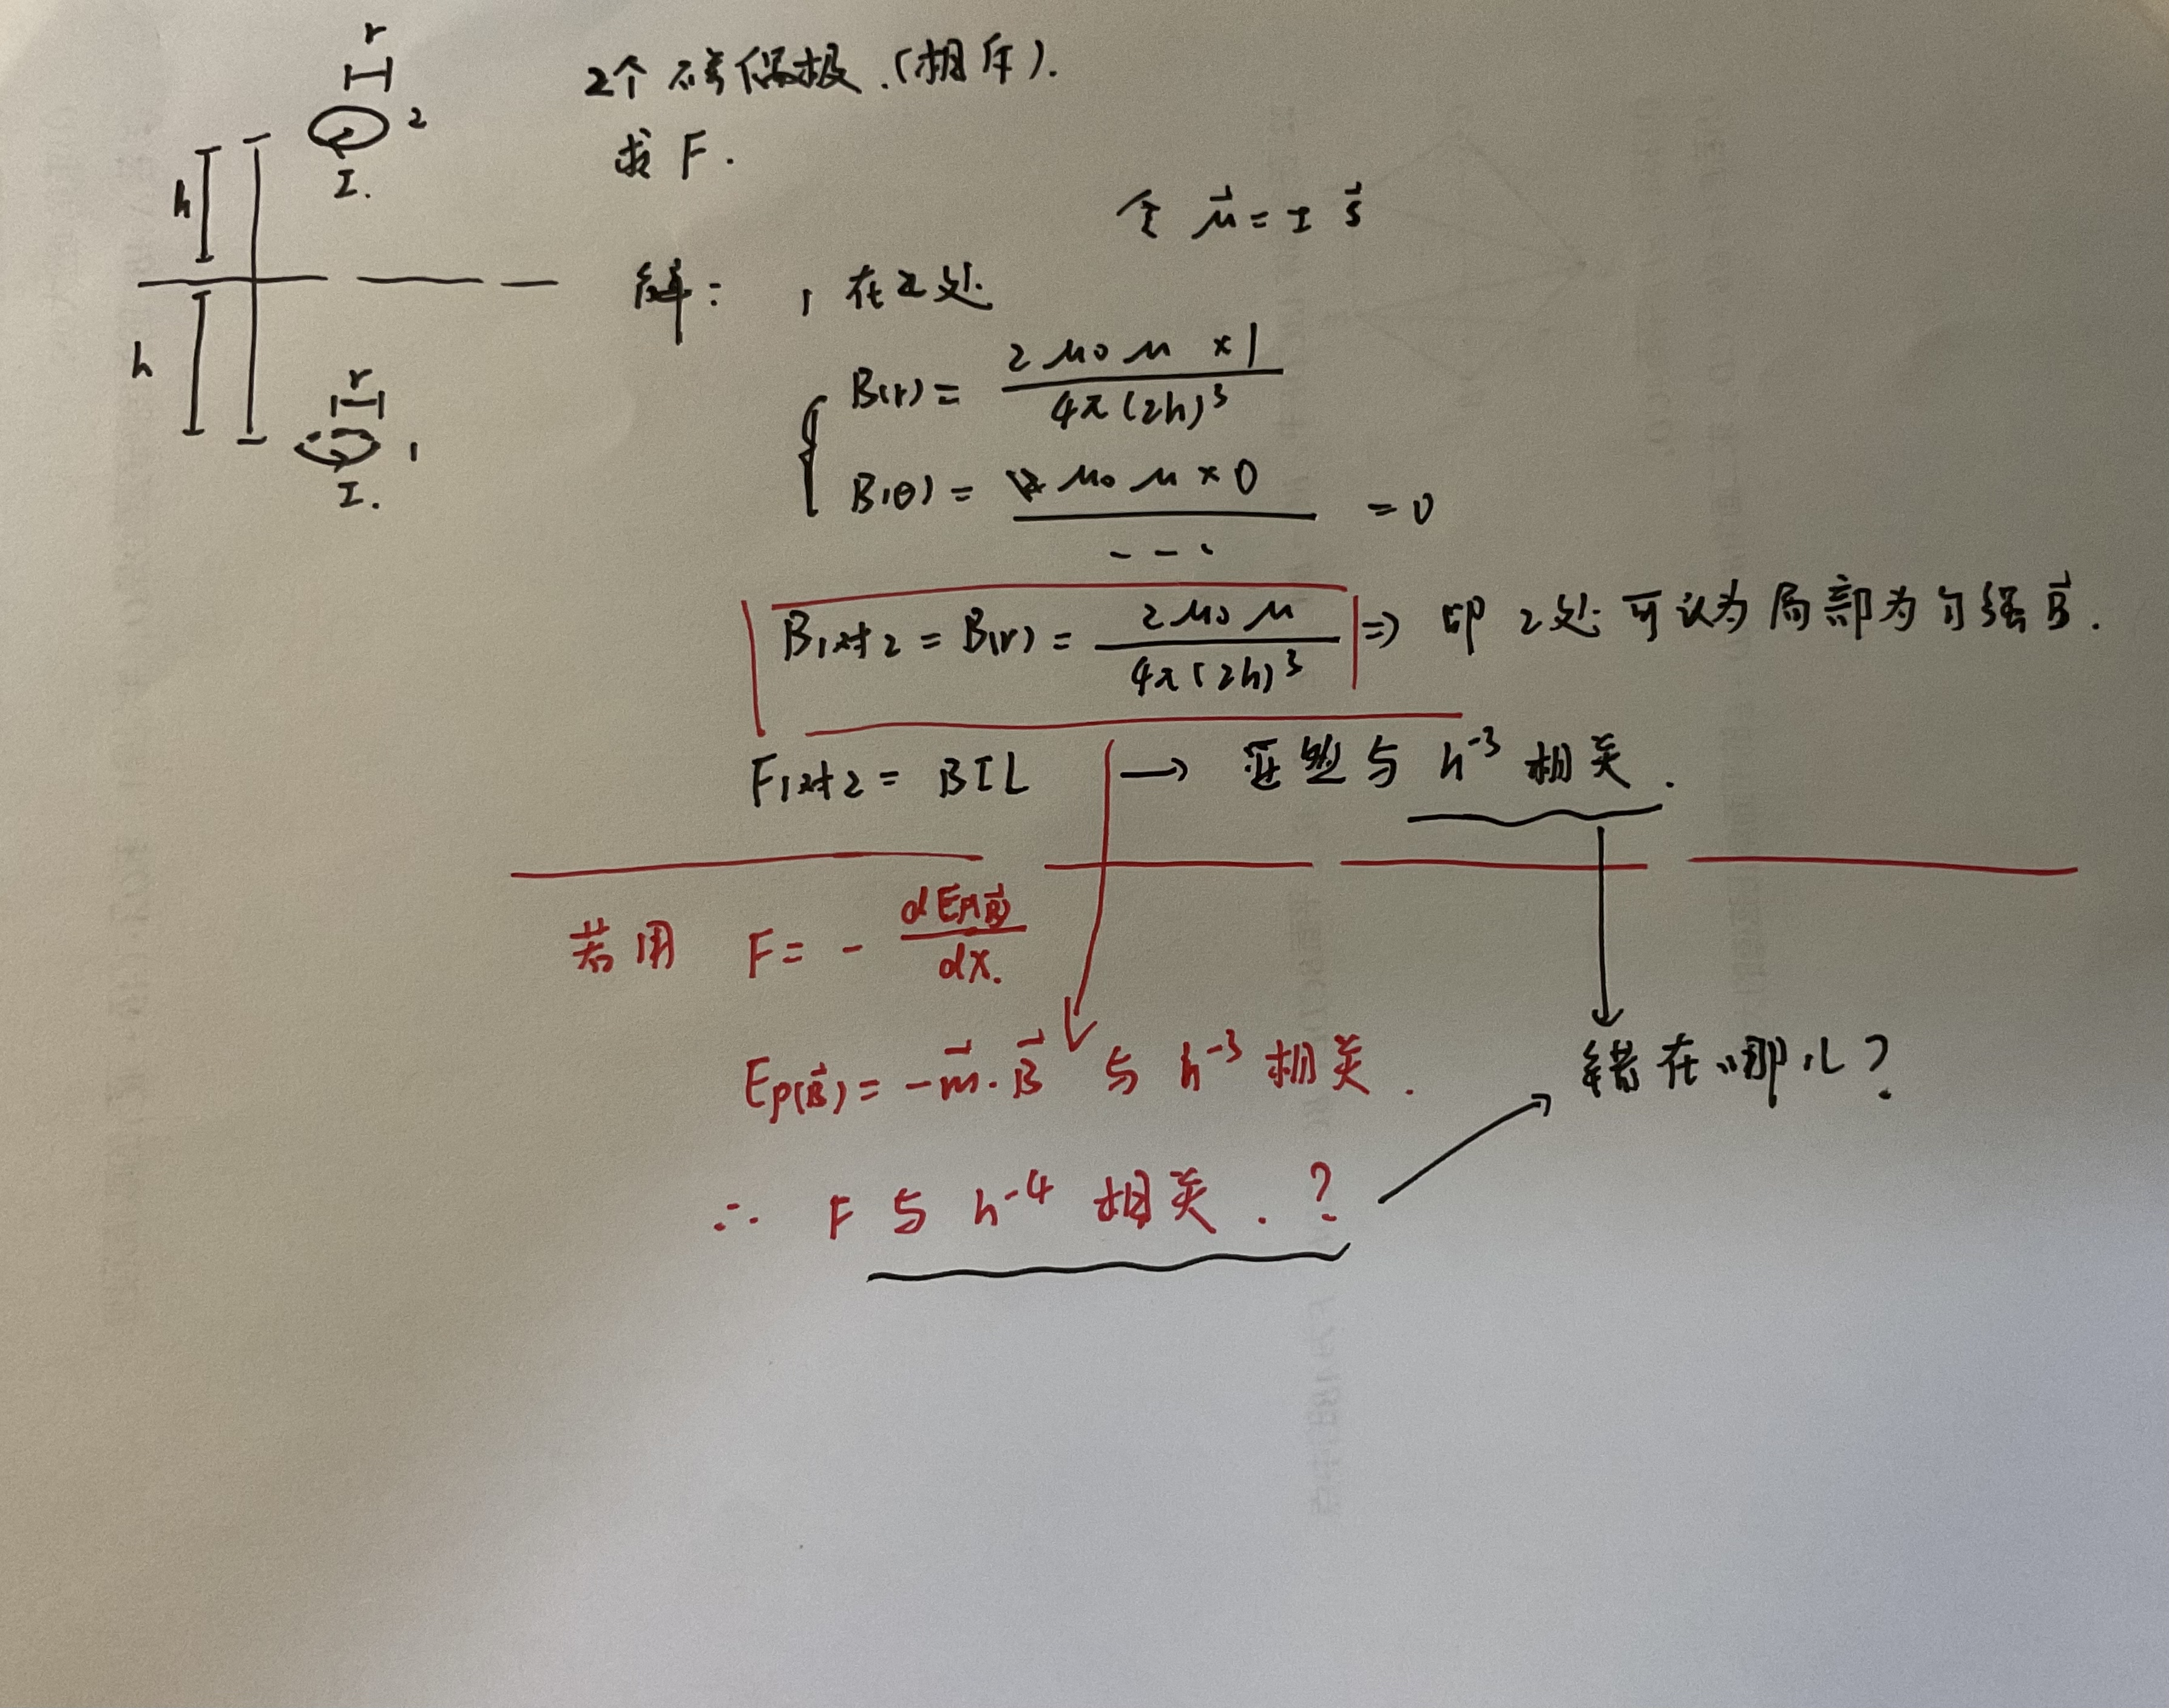 r
2
I.
h
h
r
1
I.
2个磁偶极.(相斥).
求 F.
令 μ⃗ = I S⃗
解: 1 在 2 处
B(r) = 2μ₀μ×1 / 4π(2h)³
B(θ) = μ₀μ×0 / ... = 0
B1对2 = B(r) = 2μ₀μ / 4π(2h)³ ⇒ 即 2处可认为局部为匀强 B⃗.
F1对2 = BIL → 显然与 h⁻³ 相关.
若用 F = - dEp(B⃗) / dx.
Ep(B⃗) = -m⃗·B⃗ 与 h⁻³ 相关.
错在哪儿?
∴ F 与 h⁻⁴ 相关.?